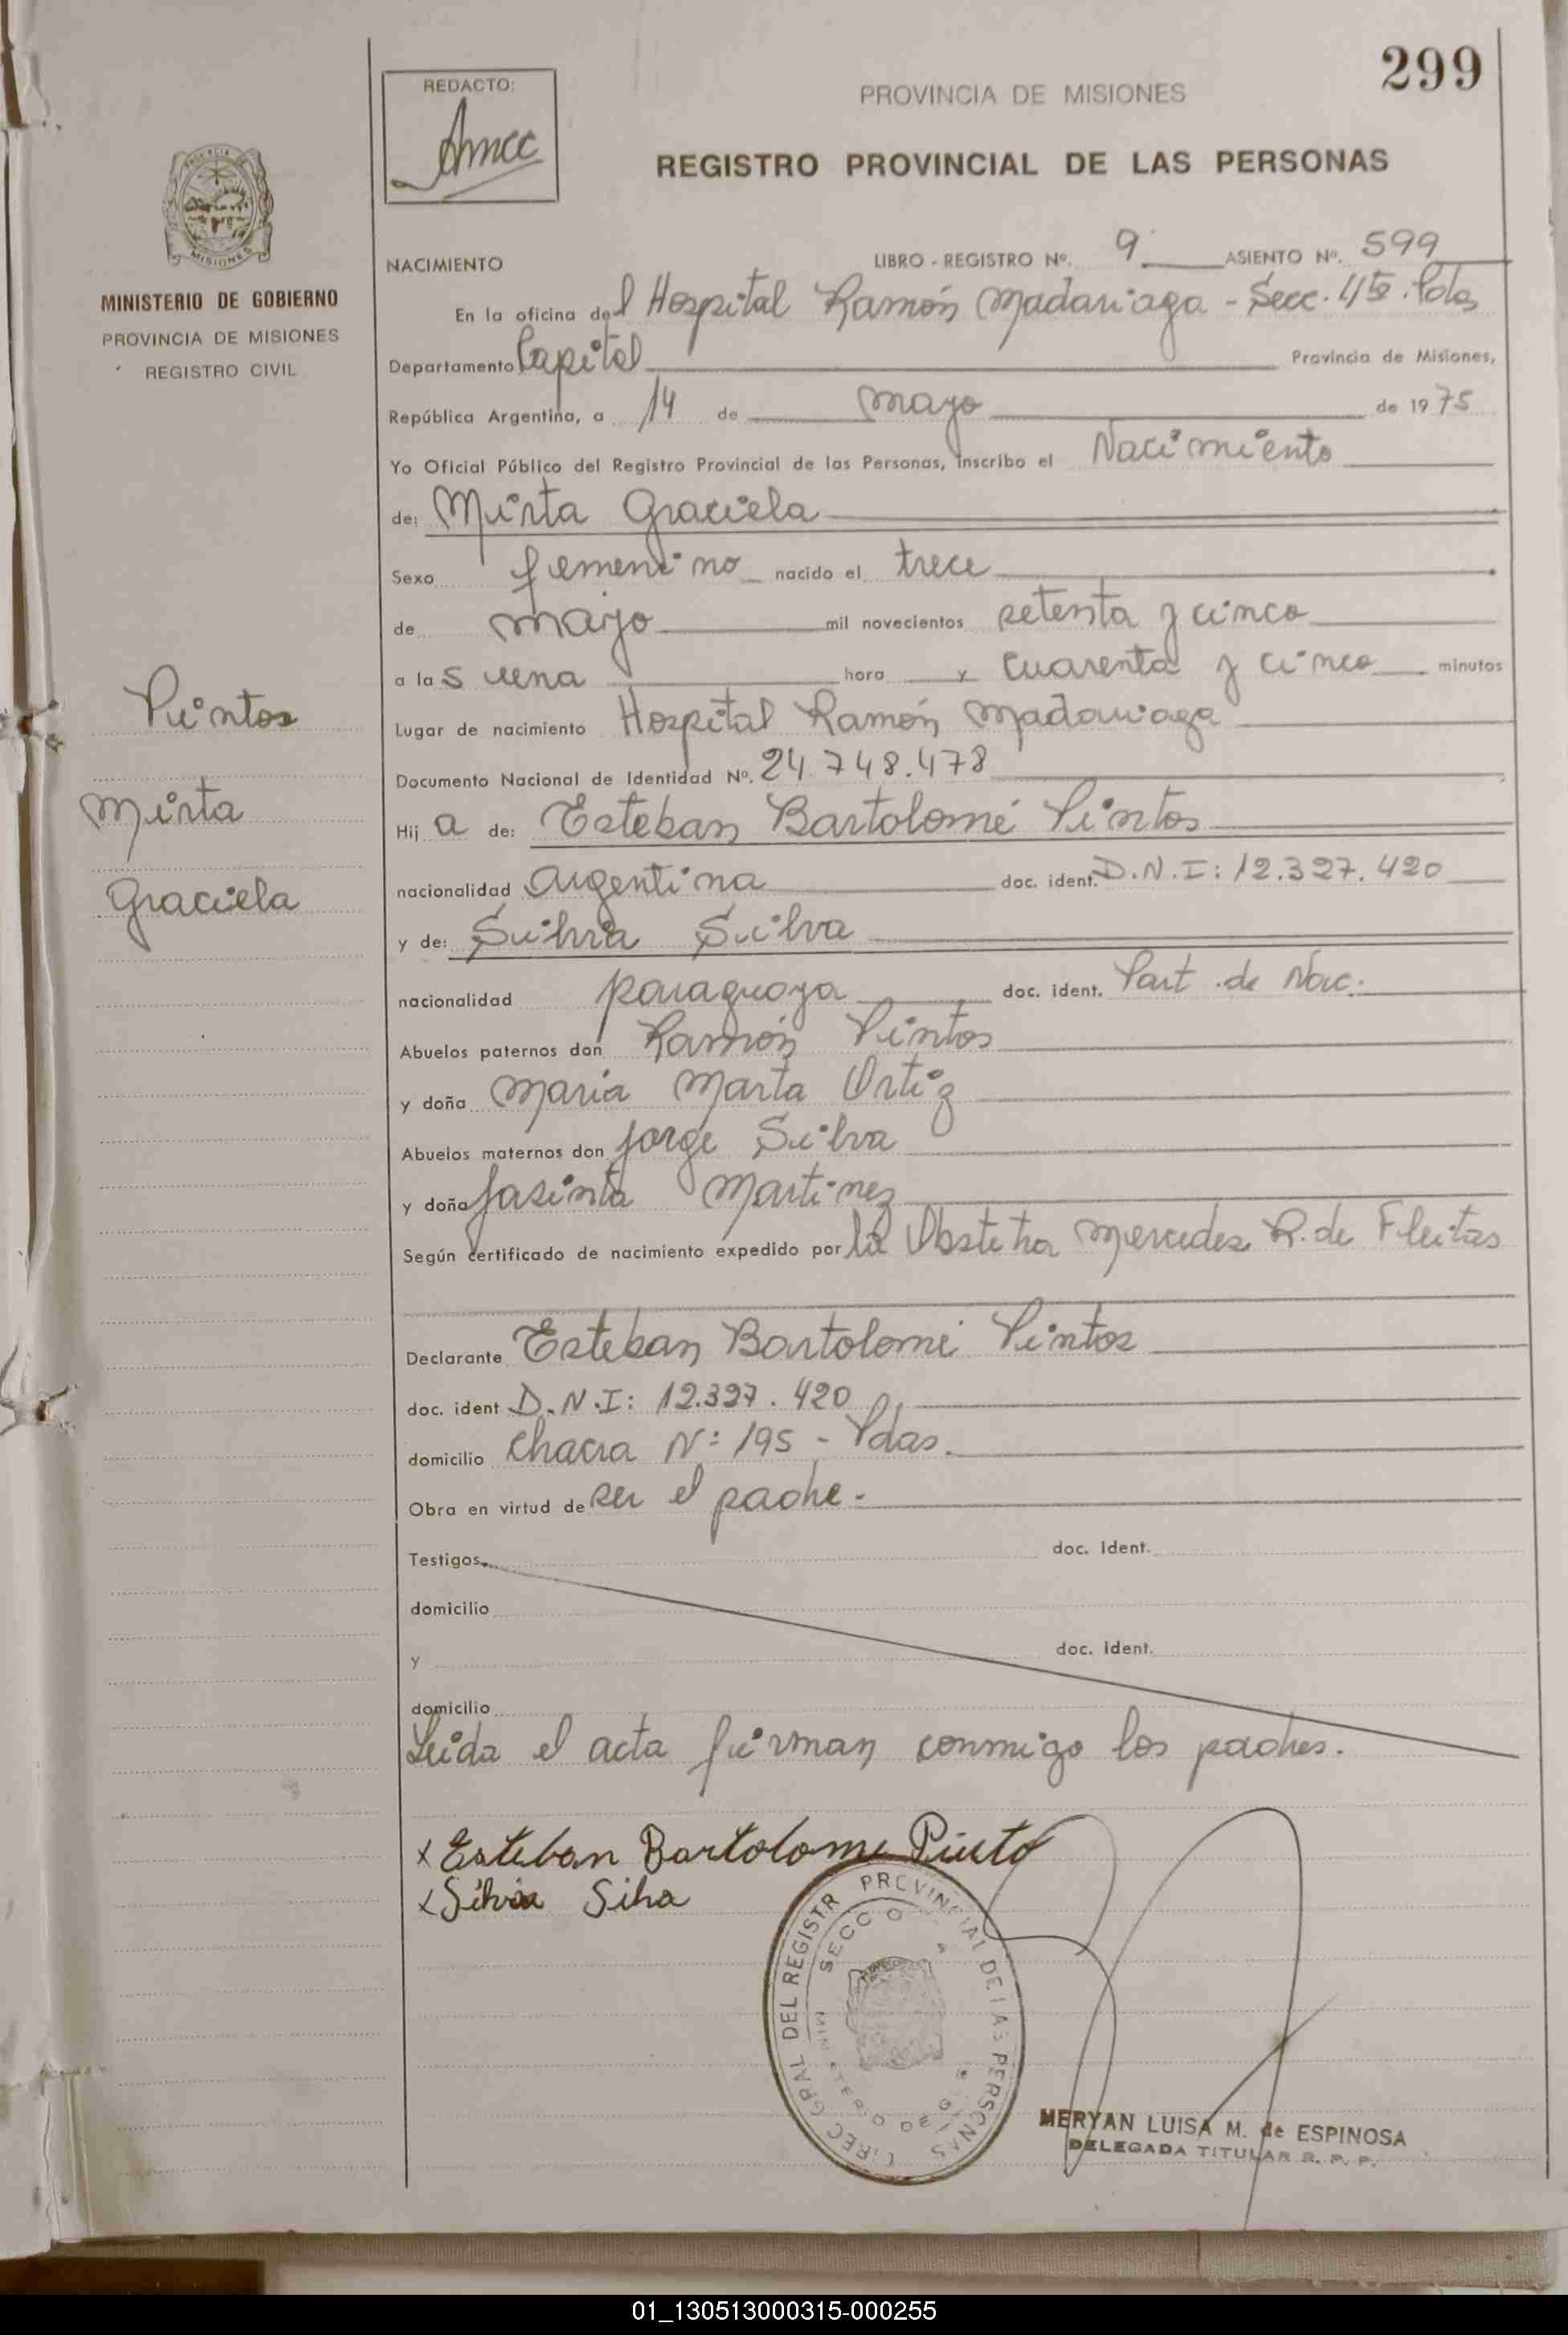 299
REDACTO:
Amcc
PROVINCIA DE MISIONES
REGISTRO PROVINCIAL DE LAS PERSONAS
MISIONES
MINISTERIO DE GOBIERNO
PROVINCIA DE MISIONES
REGISTRO CIVIL
NACIMIENTO LIBRO - REGISTRO Nº. 9 ASIENTO Nº. 599
En la oficina del Hospital Ramón Madariaga - Secc. 4ta. Pdas
Departamento Capital Provincia de Misiones,
República Argentina, a 14 de mayo de 1975
Yo Oficial Público del Registro Provincial de las Personas, inscribo el Nacimiento
de: Mirta Graciela
Sexo femenino nacido el trece
de mayo mil novecientos setenta y cinco
a las una hora y cuarenta y cinco minutos
Lugar de nacimiento Hospital Ramón Madariaga
Documento Nacional de Identidad Nº. 24.748.478
Hij a de: Esteban Bartolomé Pintos
nacionalidad argentina doc. ident. D.N.I: 12.327.420
y de: Silvia Silva
nacionalidad paraguaya doc. ident. Part. de Nac.
Abuelos paternos don Ramón Pintos
y doña María Marta Ortiz
Abuelos maternos don Jorge Silva
y doña Jasinta Martinez
Según certificado de nacimiento expedido por la Obstetra Mercedes R. de Fleitas
Declarante Esteban Bartolomé Pintos
doc. ident D.N.I: 12.327.420
domicilio Chacra Nº 195 - Pdas.
Obra en virtud de ser el padre.
Testigos doc. ident.
domicilio
y doc. ident.
domicilio
Leida el acta firman conmigo los padres.
x Esteban Bartolome Pinto
x Silvia Silva
Pintos
Mirta
Graciela
DIREC GRAL DEL REGISTR PROVINCIAL DE LAS PERSONAS
MERYAN LUISA M. de ESPINOSA
DELEGADA TITULAR R. P. P.
01_130513000315-000255